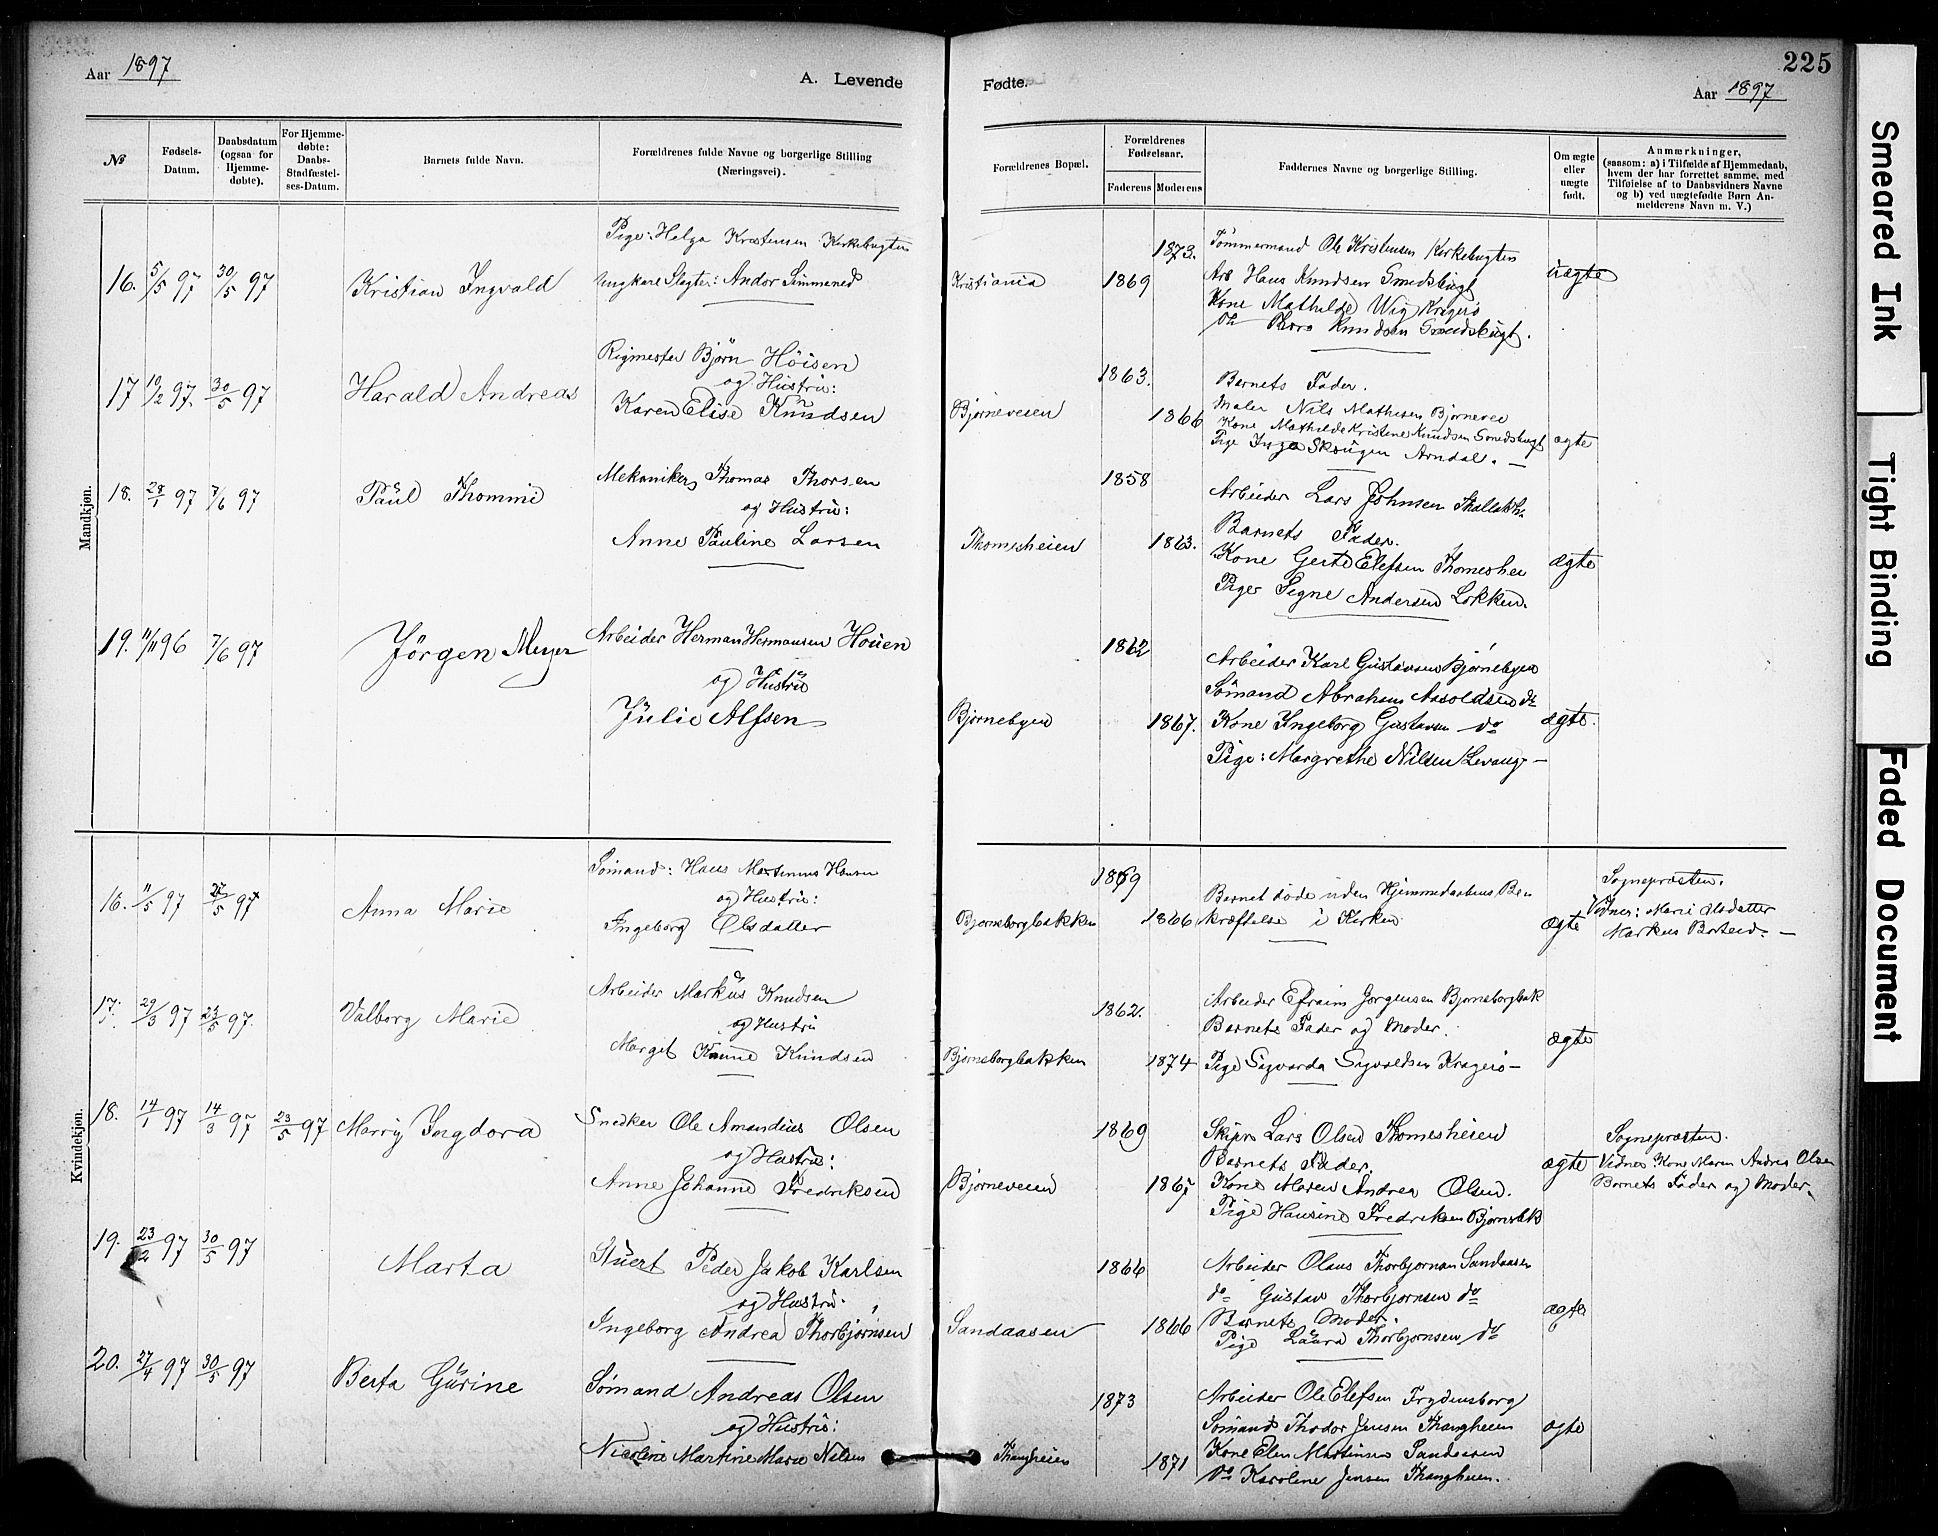 Aar 1897
A. Levende
Fødte.
225
Aar 1897
№
Fødsels-Datum.
Daabsdatum (ogsaa for Hjemme-døbte).
For Hjemme-døbte: Daabs-Stadfæstel-ses-Datum.
Barnets fulde Navn.
Forældrenes fulde Navne og borgerlige Stilling (Næringsvei).
Forældrenes Bopæl.
Forældrenes Fødselsaar.
Faderens
Moderens
Faddernes Navne og borgerlige Stilling.
Om ægte eller uægte født.
Anmærkninger,
(saasom: a) i Tilfælde af Hjemmedaab,
hvem der har forrettet samme, med
Tilføielse af to Daabsvidners Navne
og b) ved uægtefødte Børn An-
melderens Navn m. V.)
Mandkjøn.
16. 5/5 97 30/5 97 Kristian Ingvald
Pige: Helga Kristensen Kirkebugten
Ungkarl Slagter: Andor Simmened
Kristiania 1869 1873.
Tømmermand Ole Kristensen Kirkebugten
Arb Hans Knudsen Smedsbugt
Kone Mathilde Wig Kragerø
Thora Knudsen Smedsbugt.
uægte
17 10/2 97. 30/5 97 Harald Andreas
Rigmester Bjørn Höisen
og Hustru:
Karen Elise Knudsen
Bjørneveien 1863. 1866
Barnets Fader.
Maler Nils Mathisen Bjørnevee
Kone Mathilde Kristine Knudsen Smedsbugt
Pige Inga Skougen Arndal. —
ægte
18. 28/1 97 7/6 97 Paul Thommie
Mekaniker Thomas Thorsen
og Hustru:
Anne Pauline Larsen
Thomesheien 1858 1863.
Arbeider Lars Johnsen
Barnets Fader.
Kone Gerte Elefsen Thomeshei
Piger Signe Andersen Løkken.
ægte
19. 11/11 96 7/6 97 Jörgen Meyer
Arbeider Herman Hermansen Houen
og Hustru
Julie Alfsen
Bjørnebyen 1862 1867.
Arbeider Karl Gustavsen Bjørnebyen
Sömand Abraham Aasoldsen do
Kone Ingeborg Gustavsen do
Pige: Margrethe Nilsen Levang —
ægte.
Kvindekjøn.
16. 11/5 97 27/5 97 Anna Marie
Sömand: Hans Martinius Hansen
og Hustru:
Ingeborg Olsdatter
Bjørneborgbakken 1869 1866
Barnet døde uden Hjemmedaabens Be-
kræftelse i Kirken
ægte
Sognepræsten.
Vidner: Marie Olsdatter
Markus
17. 29/3 97 23/5 97. Valborg Marie
Arbeider Markus Knudsen
og Hustru
Marget Knudsen
Bjørneborgbakken 1862. 1874
Arbeider Efraim Jørgensen Bjørneborgbak
Barnets Fader og Moder.
Pige Sigvarda Sigvaldsen Kragerö —
ægte
18. 14/1 97 14/3 97 23/5 97 Marry Ingdora
Snedker Ole Amandius Olsen
og Hustru:
Anne Johanne Fredriksen
Bjørneveien 1869 1867
Skipr Lars Olsen Thomesheien
Barnets Fader.
Kone Maren Andrea Olsen.
Pige Hansine Fredriksen Bjørnebk
ægte
Sognepræsten.
Vidner: Kone Maren Andrea Olsen
Barnets Fader og Moder.
19. 23/2 97 30/5 97 Marta
Stuert Peder Jakob Karlsen
og Hustru.
Ingeborg Andrea Thorbjørnsen
Sandaasen 1866 1866
Arbeider Olaus Thorbjørnsen Sandaasen
do Gustav Thorbjørnsen do
Barnets Moder.
Pige Laura Thorbjørnsen do
ægte
20. 27/4 97 30/5 97 Berta Gurine
Sömand Andreas Olsen
og Hustru:
Nicoline Martine Marie Nilsen
Thangheien 1873 1871
Arbeider Ole Elefsen Frydensborg
Sömand Thodor Jensen Thangheien
Kone Elen Martinsen Sandaasen
do Karoline Jensen Thangheien.
ægte
Smeared Ink
Tight Binding
Faded Document